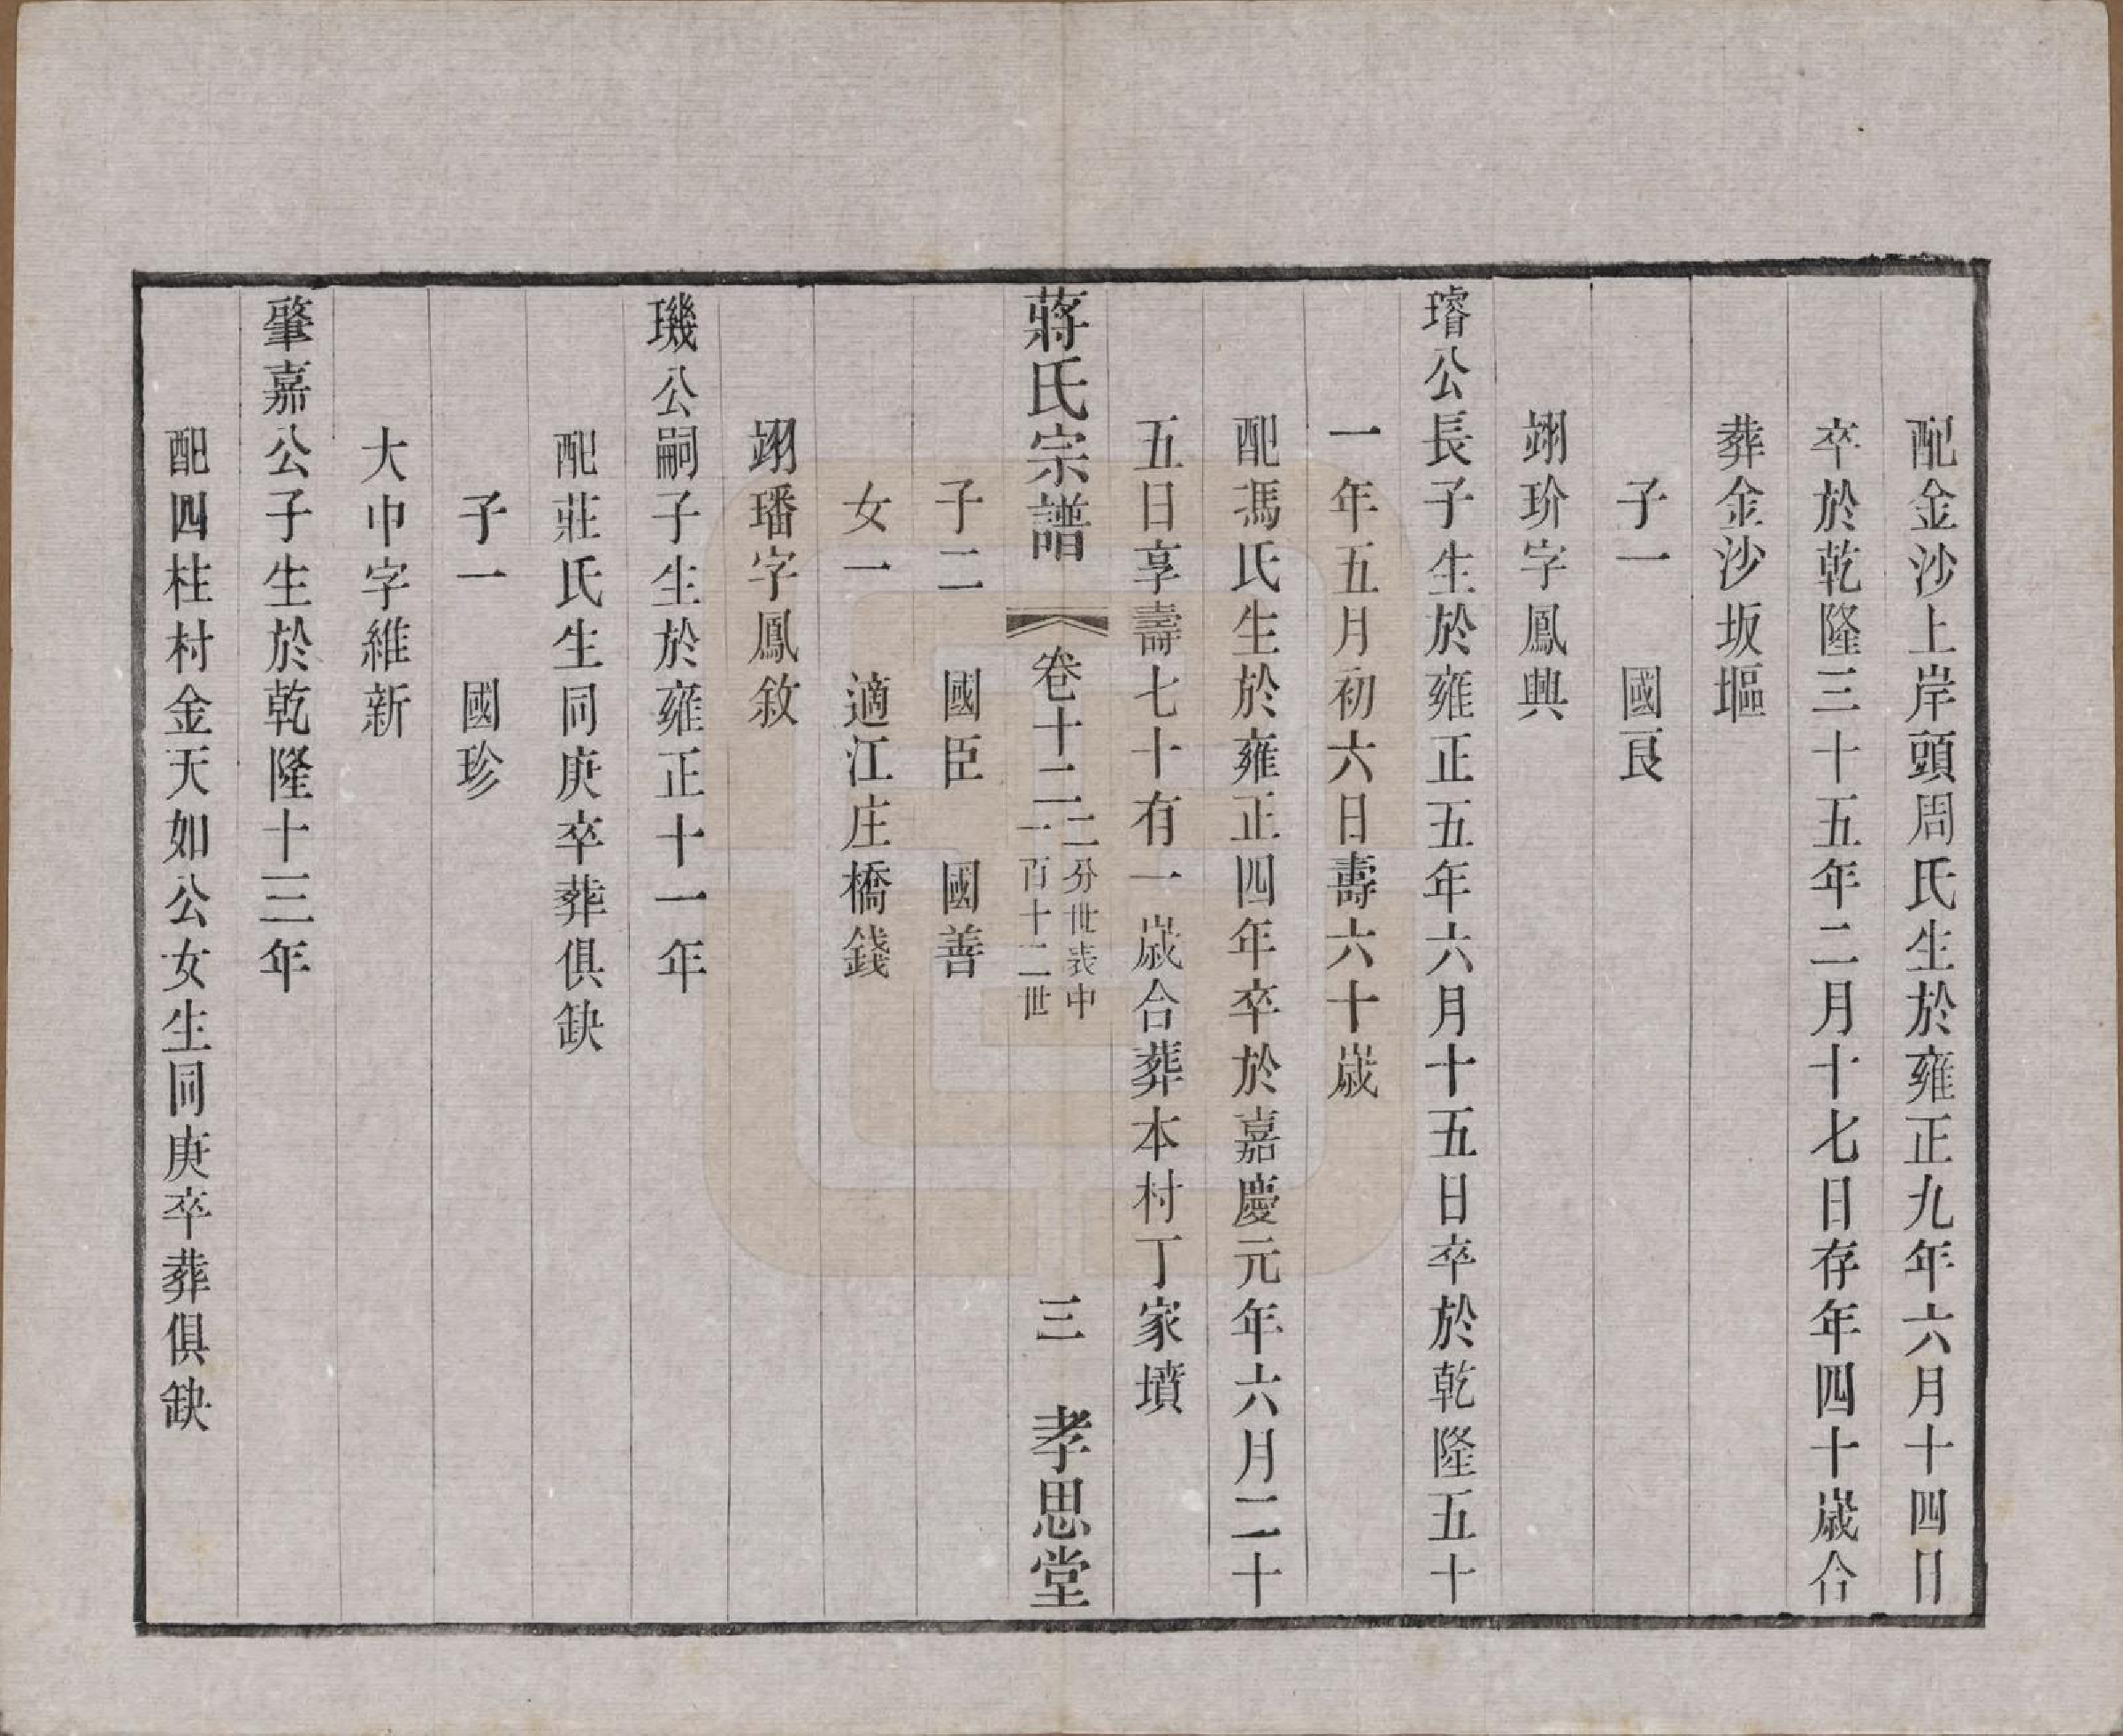 配金沙上岸頭周氏生於雍正九年六月十四日
卒於乾隆三十五年二月十七日存年四十歲合
葬金沙坂塸
子一 國良
翊玠字鳳興
璿公長子生於雍正五年六月十五日卒於乾隆五十
一年五月初六日壽六十歲
配馮氏生於雍正四年卒於嘉慶元年六月二十
五日享壽七十有一歲合葬本村丁家墳
蔣氏宗譜 卷十二 二分世表中 一百十二世 三 孝思堂
子二 國臣 國善
女一 適江庄橋錢
翊璠字鳳敘
璣公嗣子生於雍正十一年
配莊氏生同庚卒葬俱缺
子一 國珍
大巾字維新
肇嘉公子生於乾隆十三年
配四柱村金天如公女生同庚卒葬俱缺